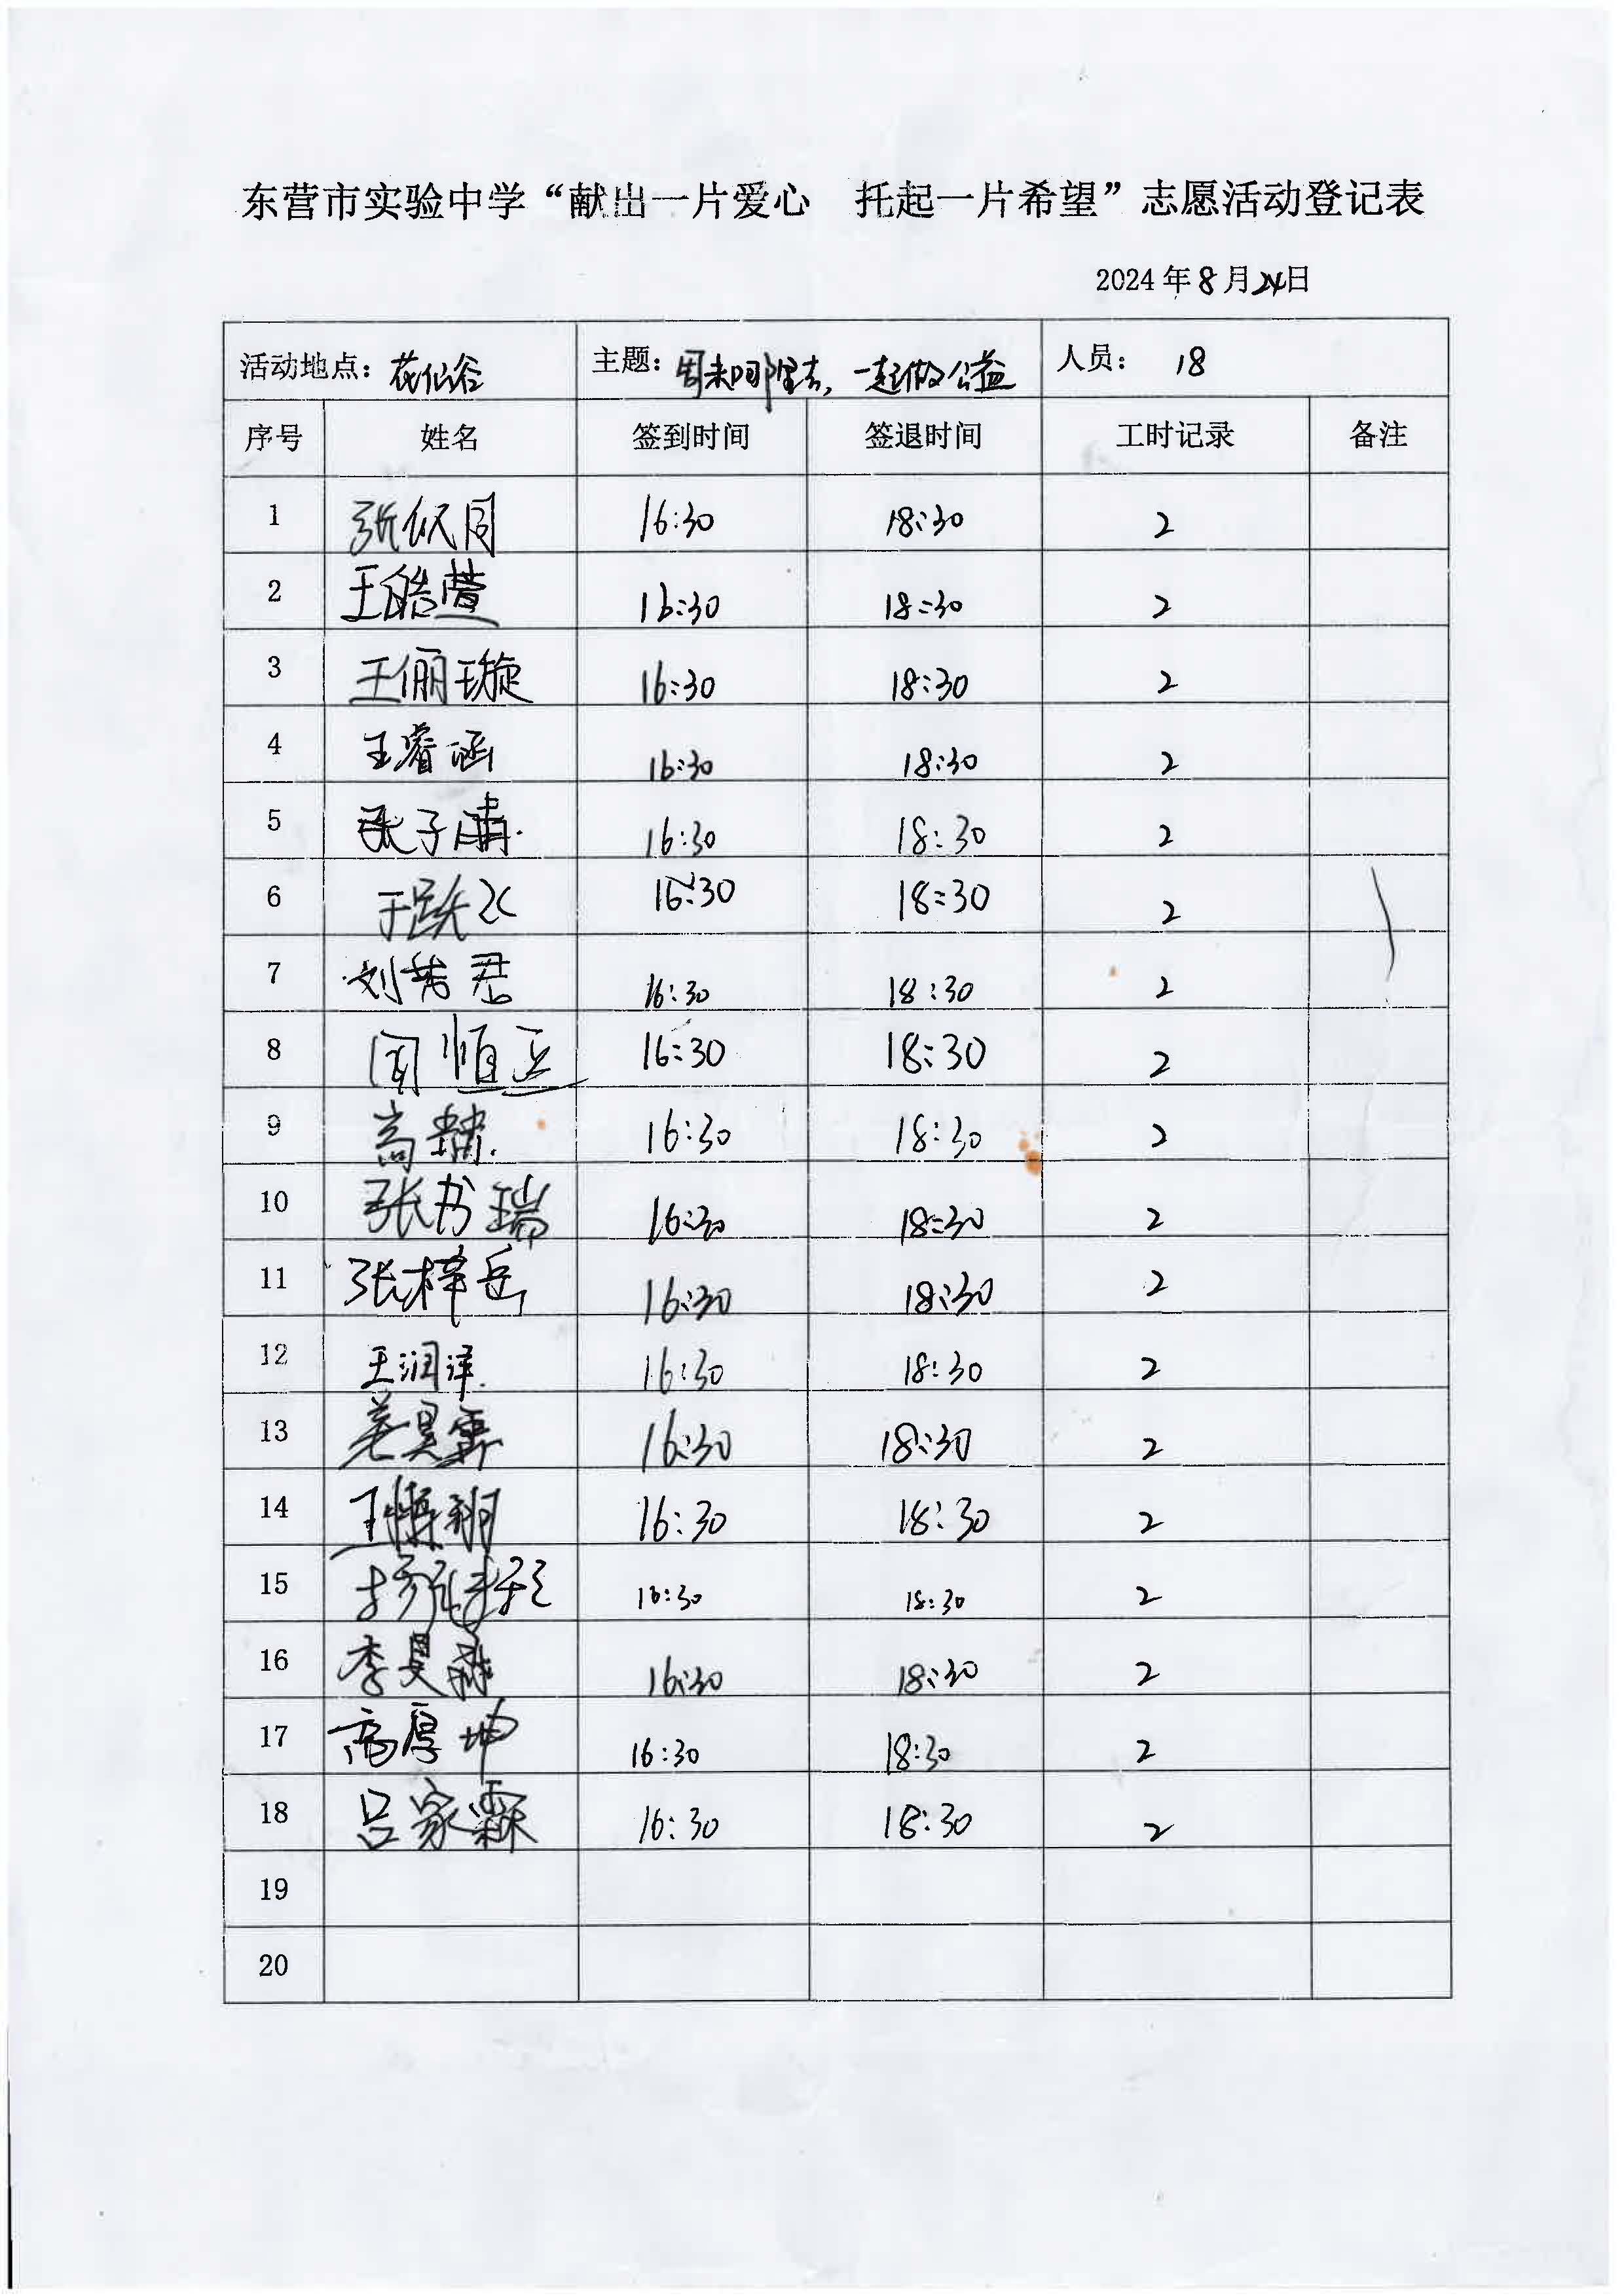 东营市实验中学“献出一片爱心 托起一片希望”志愿活动登记表
2024年8月24日
活动地点：花仙谷 主题：周末哪里去，一起做公益 人员：18
序号 姓名 签到时间 签退时间 工时记录 备注
1 张似同 16:30 18:30 2
2 王皓萱 16:30 18:30 2
3 王俪璇 16:30 18:30 2
4 王睿涵 16:30 18:30 2
5 张子 16:30 18:30 2
6 于跃水 16:30 18:30 2
7 刘若君 16:30 18:30 2
8 闫恒 16:30 18:30 2
9 高 16:30 18:30 2
10 张书瑞 16:30 18:30 2
11 张梓岳 16:30 18:30 2
12 王润泽 16:30 18:30 2
13 姜昊霖 16:30 18:30 2
14 王博翔 16:30 18:30 2
15 16:30 18:30 2
16 李昊 16:30 18:30 2
17 高厚坤 16:30 18:30 2
18 吕家霖 16:30 18:30 2
19
20